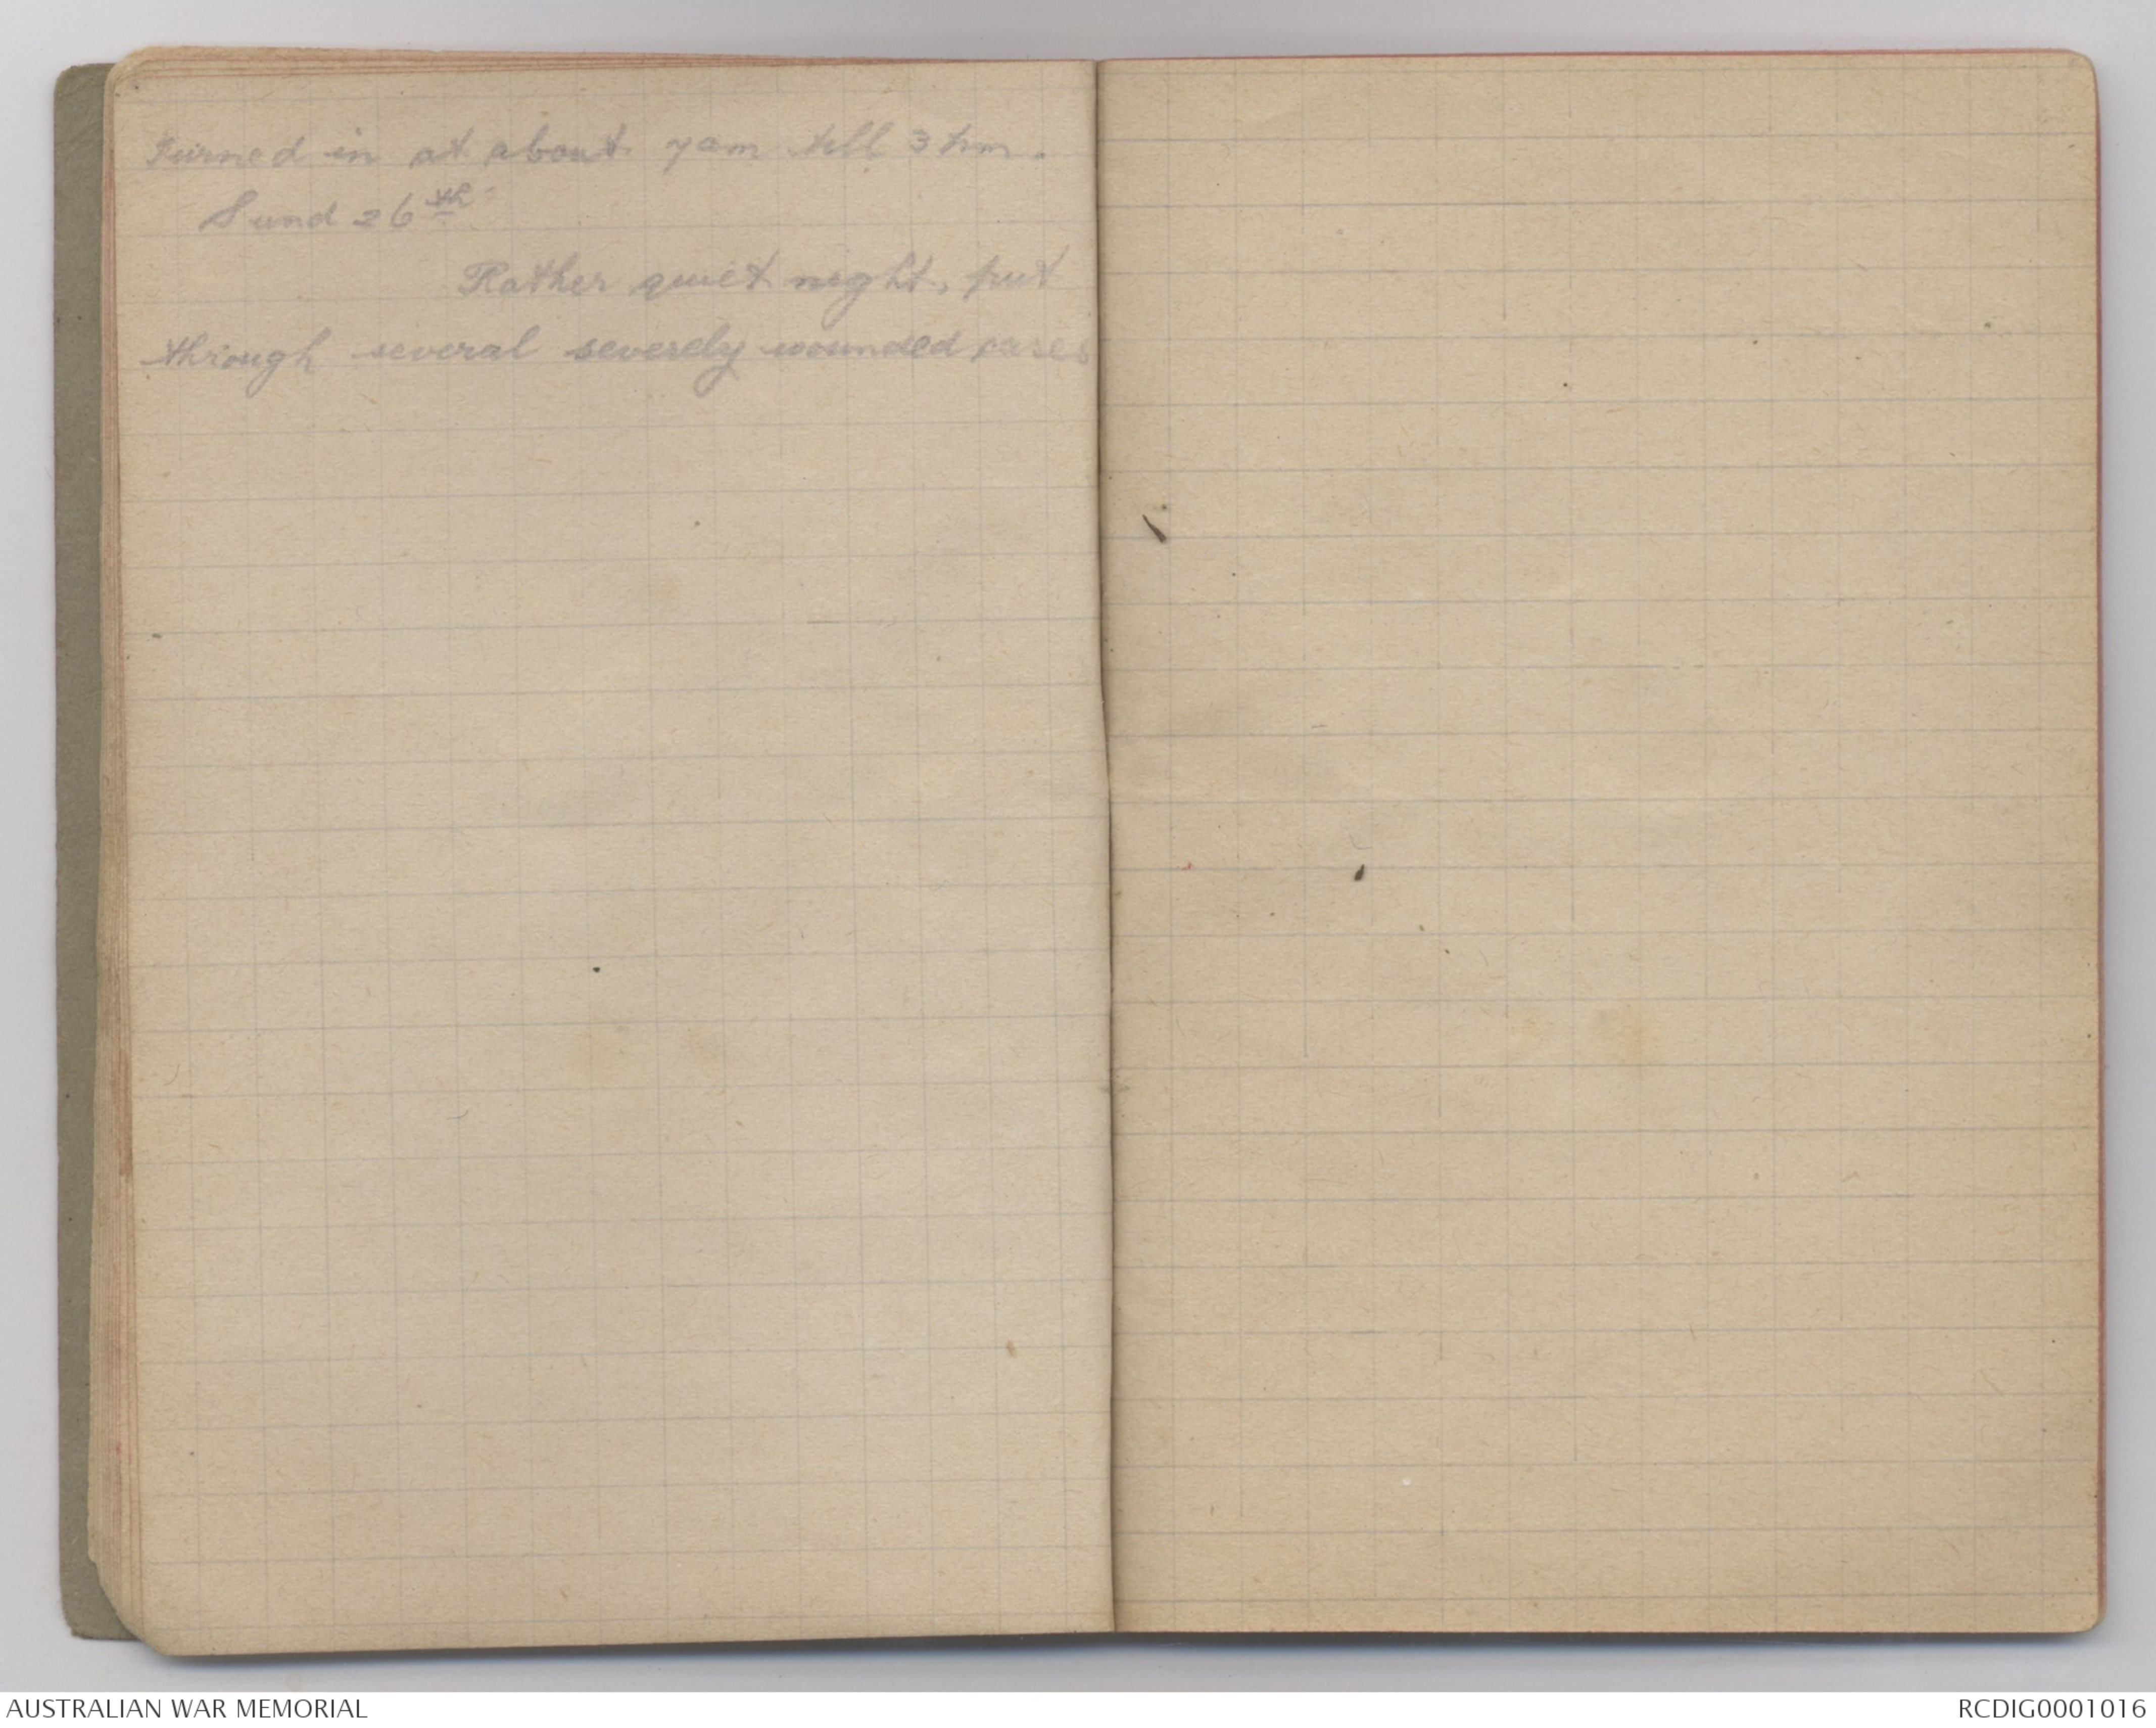 Turned in at about 7am till 3 pm.
Sund 26th
Rather quiet night, put
through several severely wounded cases
AUSTRALIAN WAR MEMORIAL
RCDIG0001016